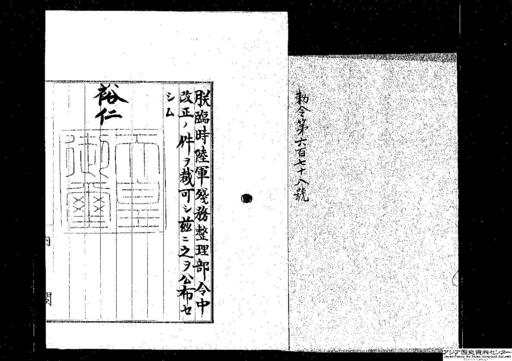 勅令第六百七十八號
朕臨時陸軍殘務整理部令中
改正ノ件ヲ裁可シ茲ニ之ヲ公布セ
シム
裕仁
天皇
御璽
内閣
アジア歴史資料センター